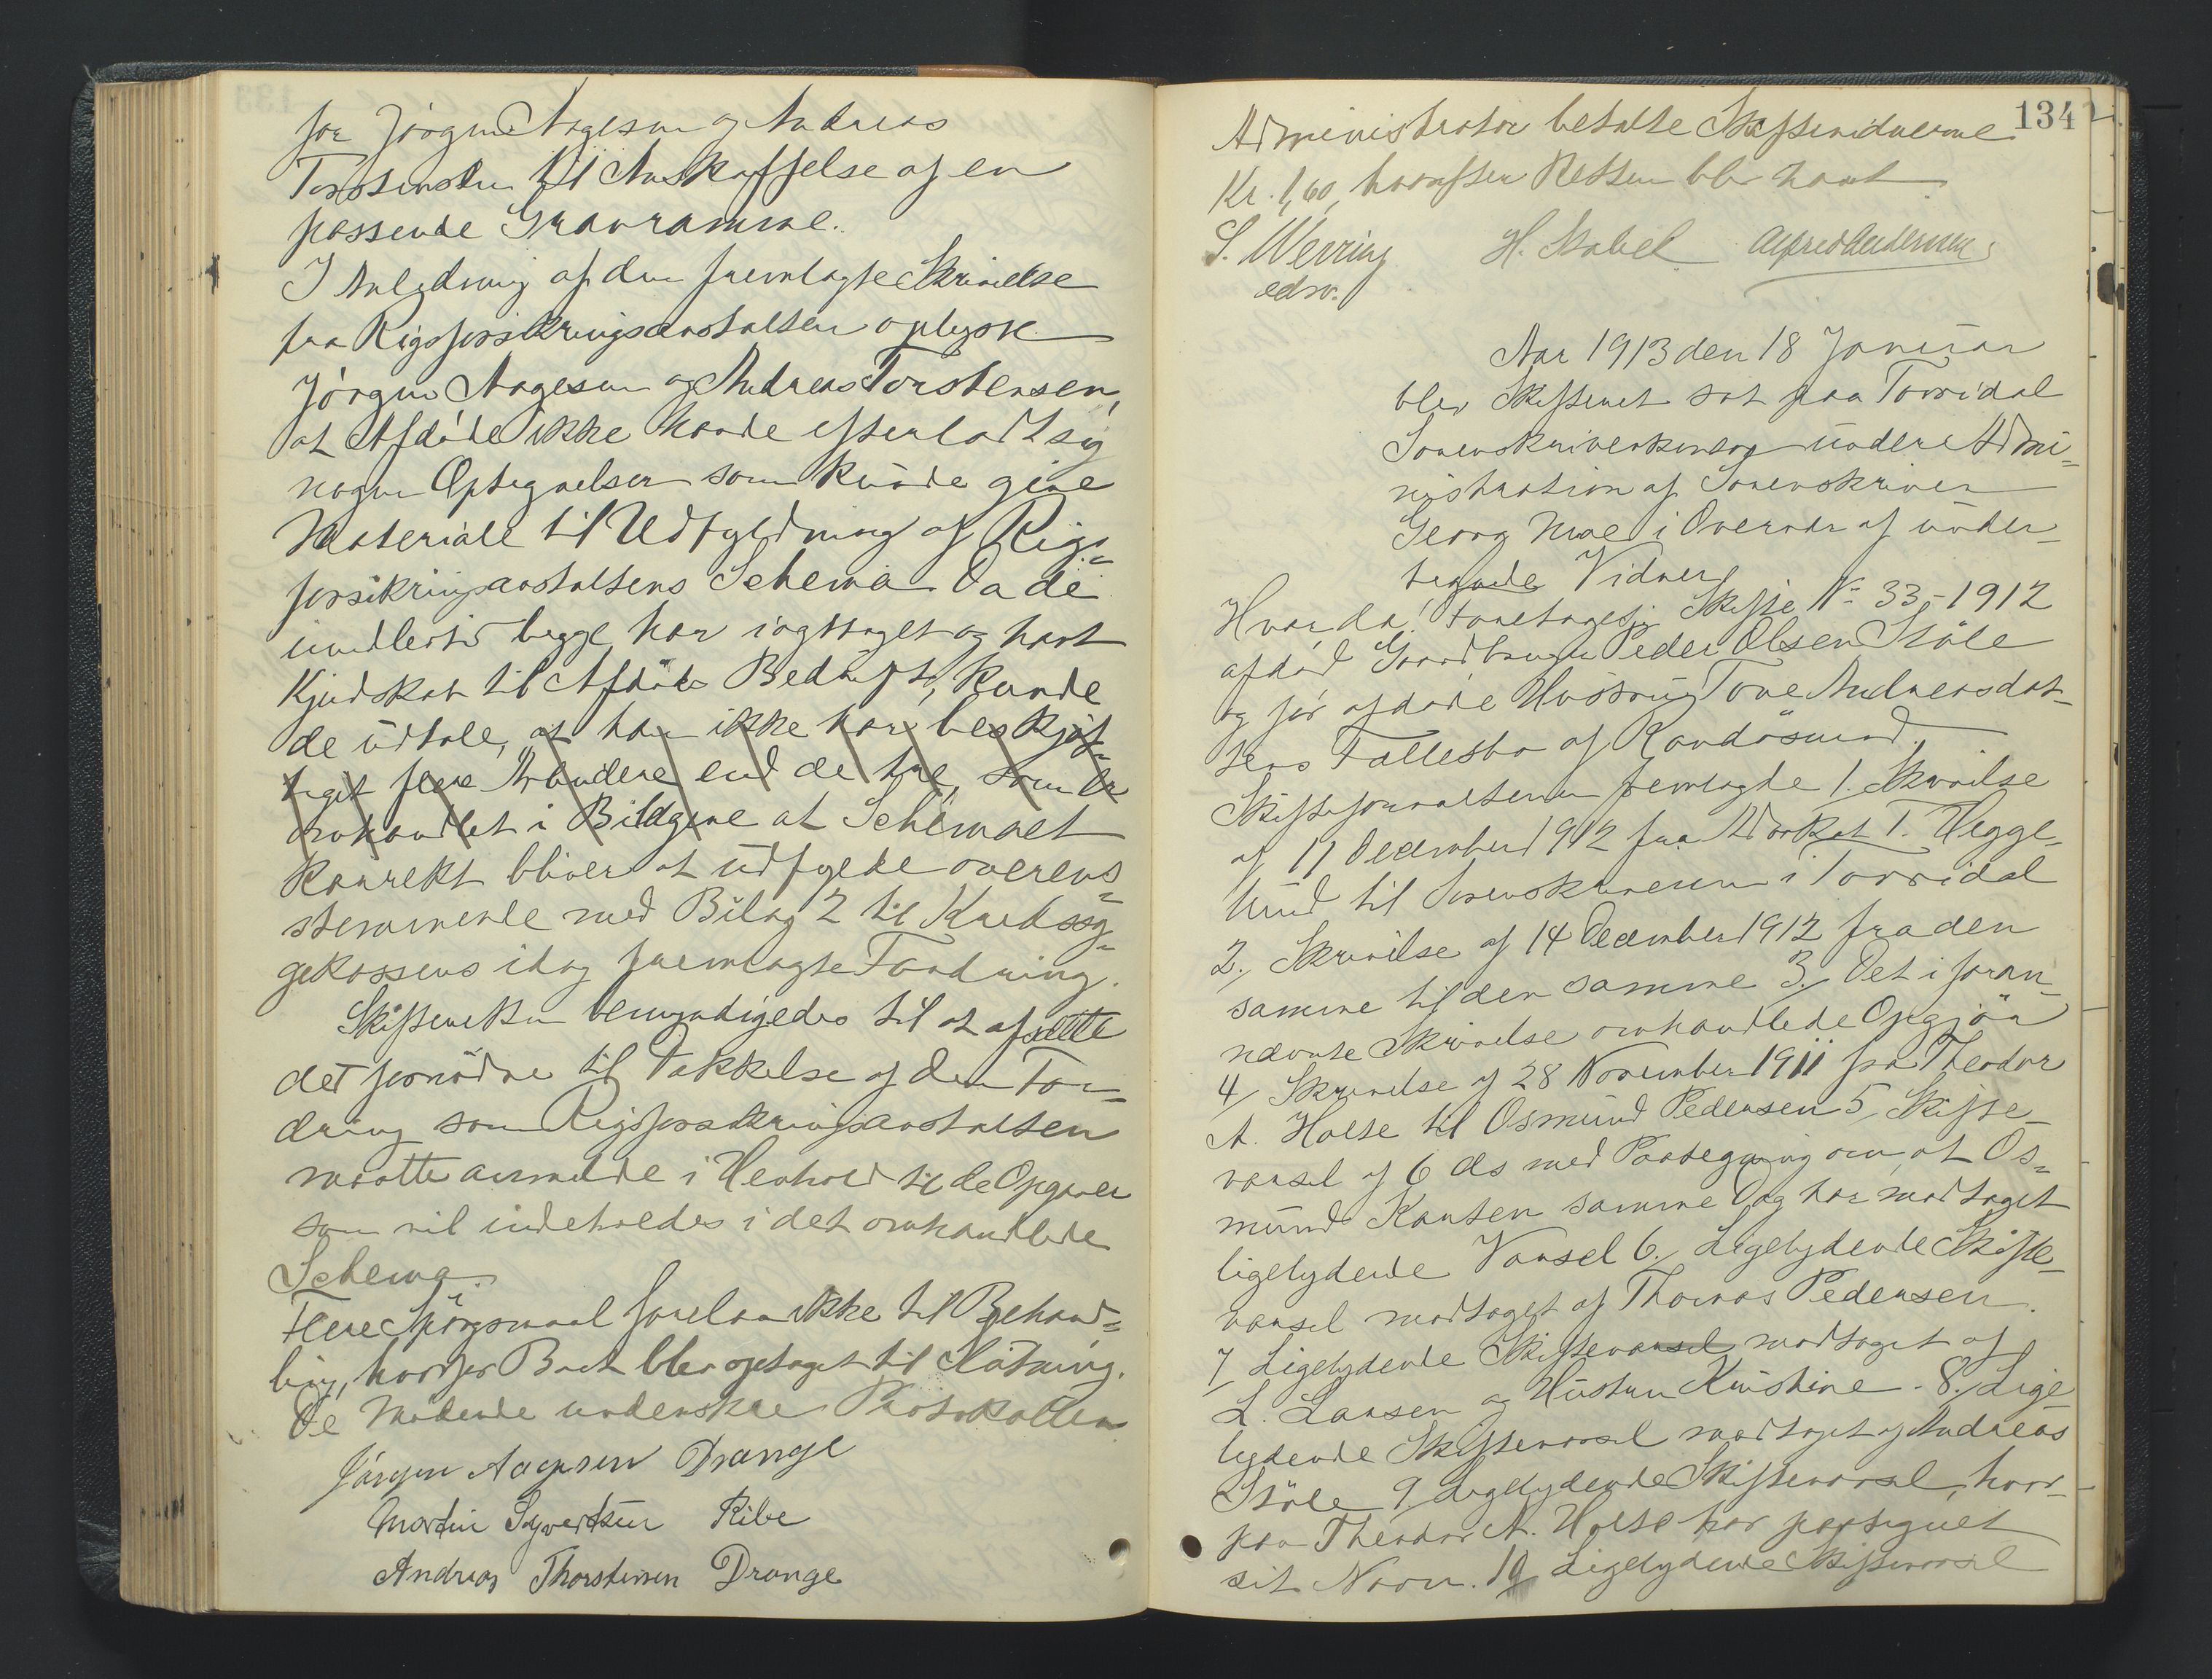 for Jörgen Aagesen og Andreas
Torstensen til Anskaffelse af en
passende Gravramme.
I Anledning af den fremlagte Skrivelse
fra Rigsforsikringsanstalten oplyste
Jörgen Aagesen og Andreas Torstensen,
at Afdöde ikke havde efterladt sig
nogen Optegnelser som kunde give
Materiale til Udfyldning af Rigs=
forsikringsanstaltens Schema. Da de
imidlertid begge har iagttaget og havt
Kjendskab til Afdödes Bedrift, kunde
de udtale, at han ikke har beskjæf-
tiget flere Arbeidere end de tre, som er
omhandlet i Bilagene at Schemaet
korrekt bliver at udfylde overens=
stemmende med Bilag 2 til Kredssy=
gekassens idag fremlagte Fordring.
Skifteretten bemyndigedes til at afsætte
det fornödne til Dækkelse af den For=
dring som Rigsforsikringsanstalten
maatte anmelde i Henhold til de Opgaver
som vil indeholdes i det omhandlede
Schema.
Flere Spörgsmaal forelaa ikke til Behand=
ling, hvorfor Boet blev optaget til Slutning.
De Mödende underskrev Protokollen
Jörgen Aagesen Drange
Martin Syvertsen Ribe
Andreas Thorstensen Drange
134
Administrator betalte Skiftevidnerne
Kr. 1,60, hvorefter Retten blev hævet
S. Werring H. Stabel Alfred Andersen
edsv.
Aar 1913 den 18 Januar
blev Skifteret sat paa Torridal
Sorenskriverkontor under Admi=
nistration af Sorenskriver
Georg Moe i Overvær af under-
tegnede Vidner
Hvorda! Foretoges Skifte No 33,-1912
afdöd Gaardbruger Peder Olsen Stöle
og för afdöde Hustru Tone Andreasdat-
ters Fællesbo af Randösund.
Skifteforvalteren fremlagde 1. Skrivelse
af 11 December 1912 fra Advokat T. Hegge-
lund til Sorenskriveren i Torridal
2. Skrivelse af 14 December 1912 fra den
samme til den samme 3./ Det i foran-
nævnte Skrivelse omhandlede Opgjör
4/ Skrivelse af 28 November 1911 fra Theodor
A. Holte til Osmund Pedersen 5/ Skifte-
varsel af 6 ds med Paategning om, at Os=
mund Kanten samme Dag har modtaget
ligelydende Varsel 6./ Ligelydende Skifte-
varsel modtaget af Thomas Pedersen.
7/ Ligelydende Skiftevarsel modtaget af
L. Larsen og Hustru Kristine - 8./ Lige
lydende Skiftevarsel modtaget af Andreas
Stöle 9/ Ligelydende Skiftevarsel, hvor-
paa Theodor A. Holte har paategnet
sit Navn. 10/ Ligelydende Skiftevarsel